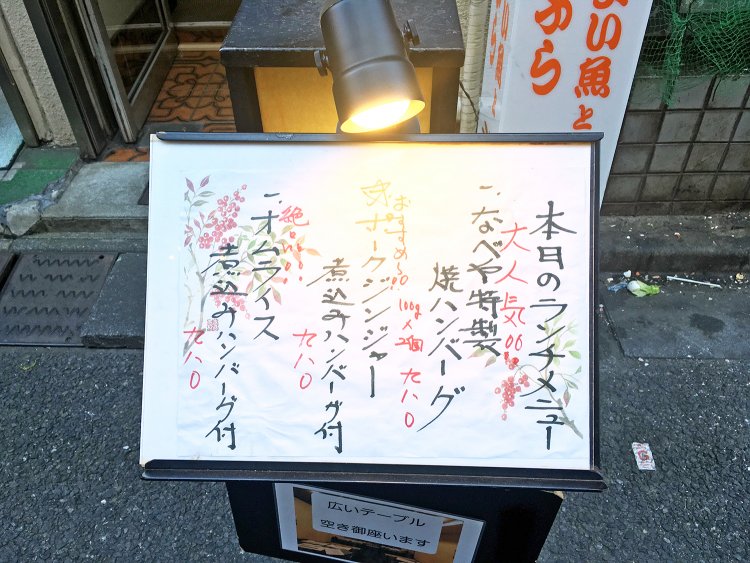 本日のランチメニュー
大人気!!
一、なべや特製
焼ハンバーグ
100g×2個 九八〇
おすすめ〜!!
ポークジンジャー
煮込みハンバーグ付
九八〇
絶品!!
一、オムライス
煮込みハンバーグ付
九八〇
広いテーブル
空き御座います
い魚と
ぷら